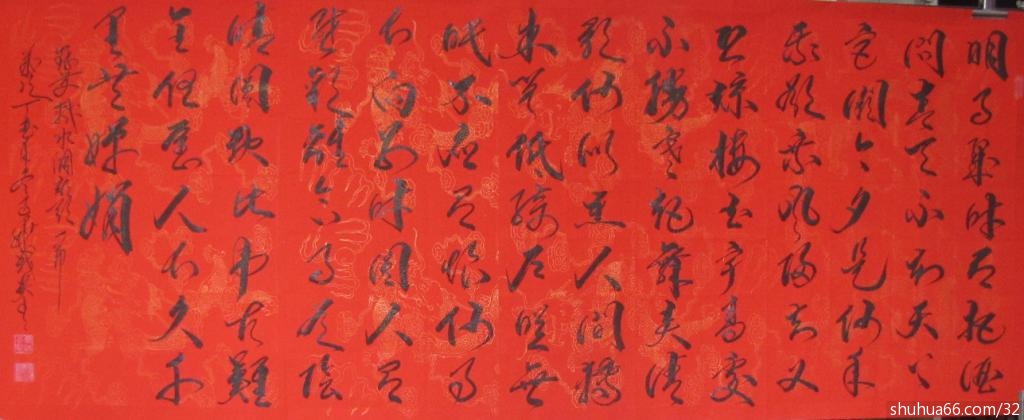 明月幾时有把酒
問青天不知天上
宫闕今夕是何年
我欲乘风归去又
恐琼楼玉宇高處
不勝寒起舞弄清
影何似在人間转
朱阁低绮户照无
眠不应有恨何事
长向别时圆人有
悲歡離合月有陰
晴圆缺此事古難
全但愿人长久千
里共婵娟
水调歌头一首
shuhua66.com/32